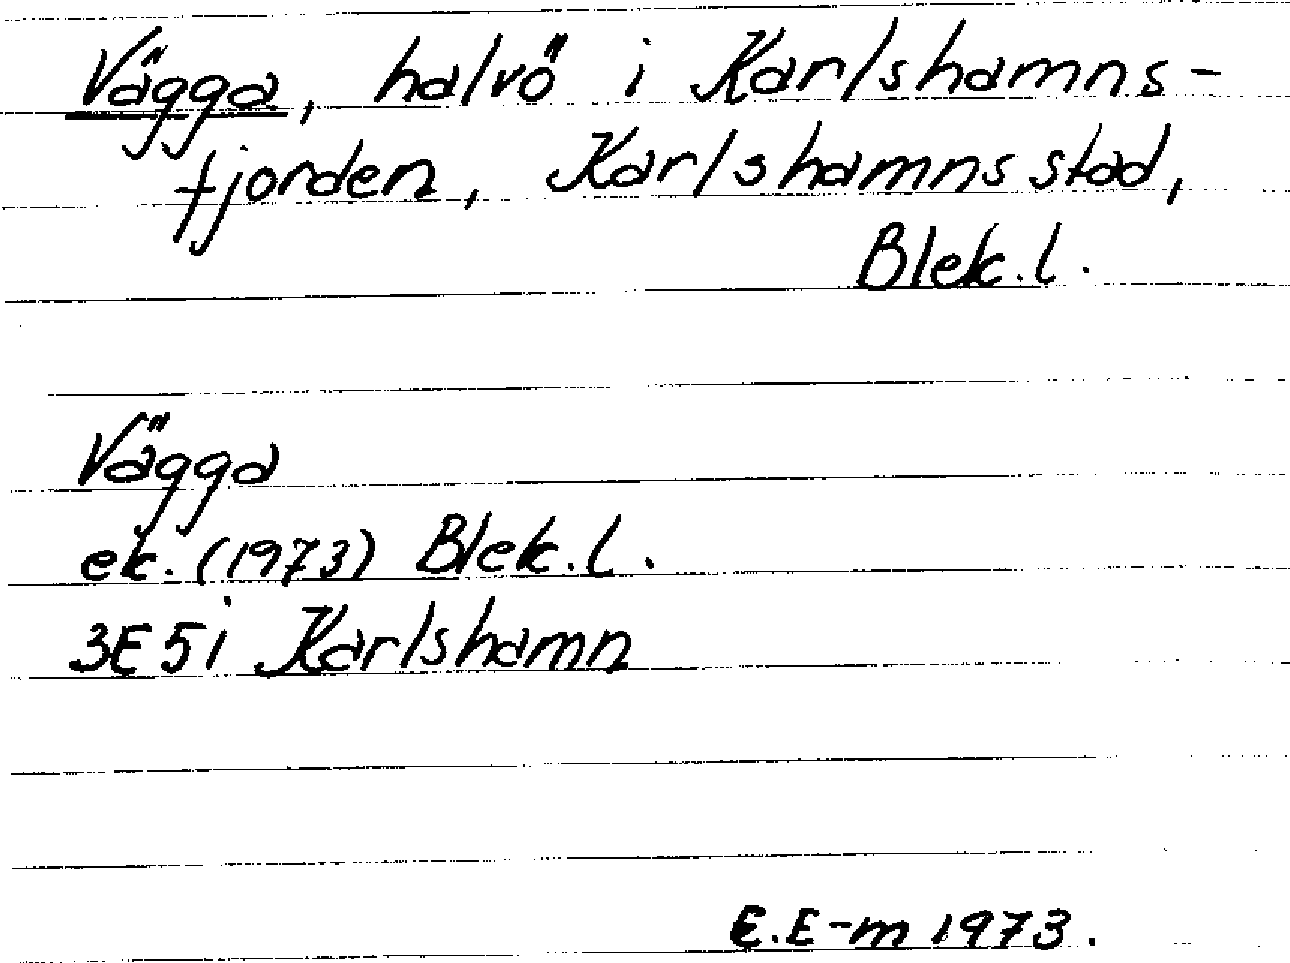 Vägga, halvö i Karlshamns-
fjorden, Karlshamns stad,
Blek. l.
Vägga
ek. (1973) Blek. l.
3E 5i Karlshamn
E. E-m 1973.